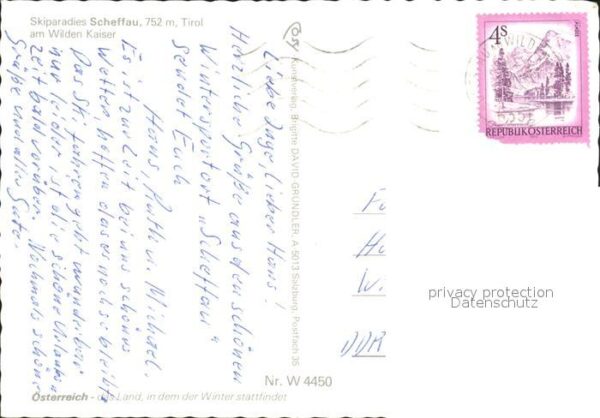 Skiparadies Scheffau, 752 m, Tirol
am Wilden Kaiser
Liebe Inge, lieber Hans!
Herzliche Grüße aus dem schönen
Wintersportort "Scheffau"
sendet Euch
Hans, Ruth u. Michael.
Es ist zur Zeit bei uns schönes
Wetter hoffen dass es noch so bleibt
Das Ski fahren geht wunderbar
nur leider ist die schöne Urlaubs
zeit bald vorüber. Nochmals schöne
Grüße und alles Gute.
Kunstverlag Brigitte DAVID-GRÜNDLER A 5013 Salzburg, Postfach 36
4 S
REPUBLIK ÖSTERREICH
DDR
privacy protection
www.oldthing.de
Nr. W 4450
Österreich - das Land, in dem der Winter stattfindet